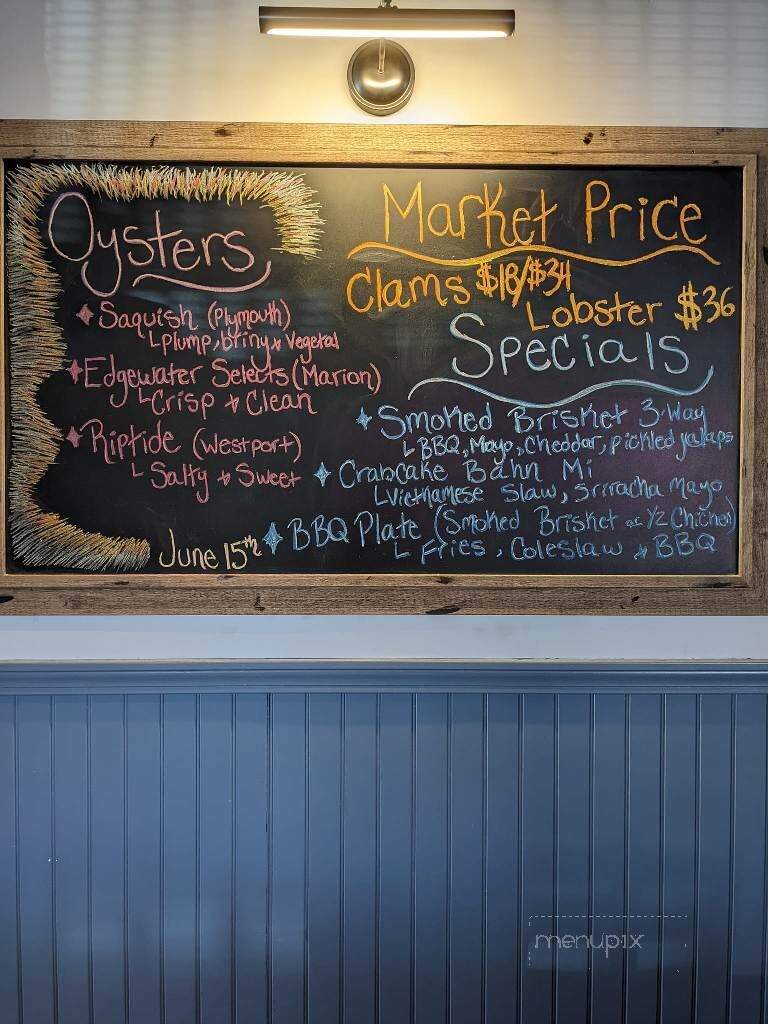 Oysters
Saquish (Plymouth)
Plump, briny & Vegetal
Edgewater Selects (Marion)
Crisp & Clean
Riptide (Westport)
Salty & Sweet
June 15th
Market Price
Clams $18/$34
Lobster $36
Specials
Smoked Brisket 3-Way
BBQ, Mayo, Cheddar, pickled jalaps
Crabcake Bahn Mi
Vietnamese Slaw, Sriracha Mayo
BBQ Plate (Smoked Brisket or 1/2 Chicken)
Fries, Coleslaw & BBQ
menupix